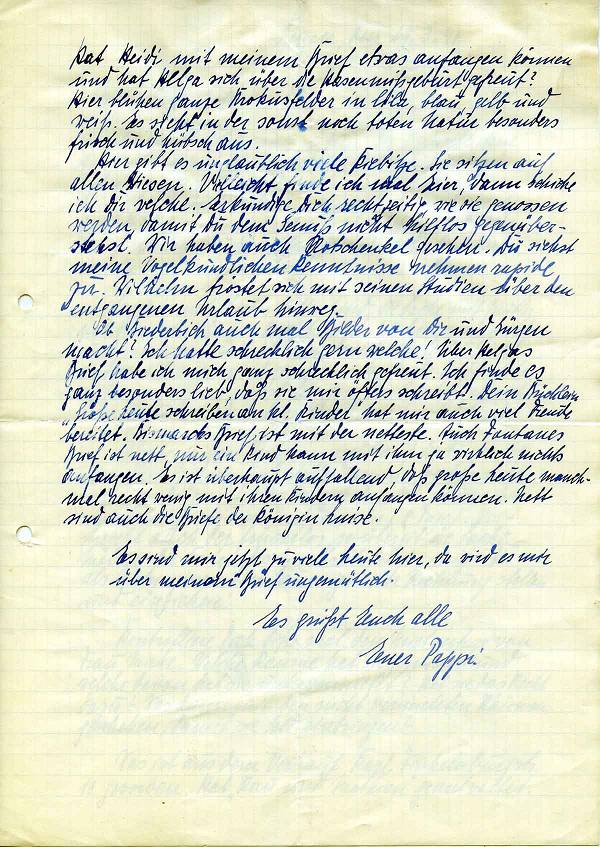 Hat Heidi mit meinem Brief etwas anfangen können
und hat Helga sich über die Hasenmißgeburt gefreut?
Hier blühen ganze Krokusfelder in lila, blau, gelb und
weiß. Es sieht in der sonst noch toten Natur besonders
frisch und hübsch aus.
Hier gibt es unglaublich viele Kiebitze. Sie sitzen auf
allen Wiesen. Vielleicht finde ich mal Eier, dann schicke
ich Dir welche. Erkundige Dich rechtzeitig wie sie genossen
werden, damit Du dem Genuß nicht hilflos gegenüber-
stehst. Wir haben auch Rotschenkel gesehen. Du siehst
meine Vogelkundlichen Kenntnisse nehmen rapide
zu. Wilhelm tröstet sich mit seinen Studien über den
entgangenen Urlaub hinweg.
Ob Biederbich auch mal Bilder von Dir und Jürgen
macht? Ich hätte schrecklich gern welche! Über Helgas
Brief habe ich mich ganz schrecklich gefreut. Ich finde es
ganz besonders lieb, daß sie mir öfters schreibt. Dein Büchlein
"Große Leute schreiben an kl. Kinder" hat mir auch viel Freude
bereitet. Bismarcks Brief ist mit der netteste. Auch Fontanes
Brief ist nett, nur ein Kind kann mit ihm ja wirklich nichts
anfangen. Es ist überhaupt auffallend, daß große Leute manch-
mal recht wenig mit ihren Kindern anfangen können. Nett
sind auch die Briefe der Königin Luise.
Es sind mir jetzt zu viele Leute hier, da wird es mir
über meinem Brief ungemütlich.
Es grüßt Euch alle
Euer Pappi